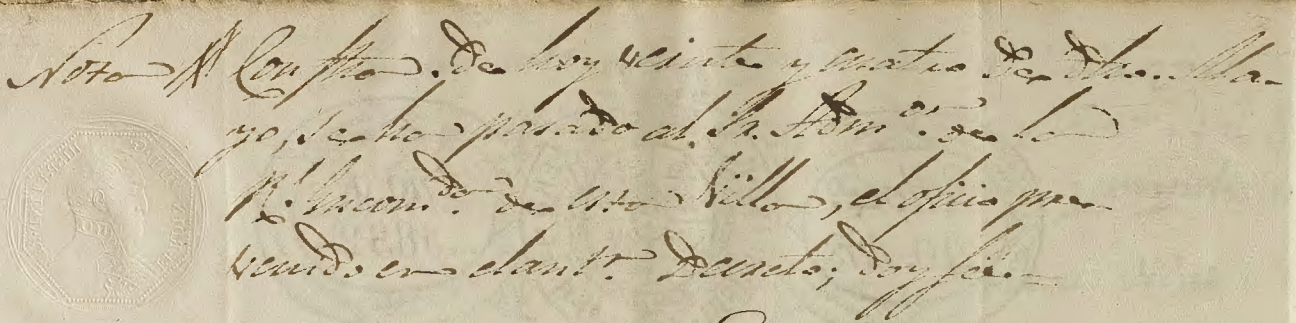 Nota // Con fha. de hoy veinte y cuatro de dho. Ma-
yo, se ha pasado al Sr. Adm.or de la
Rl. Encom.da de esta Villa, el oficio pre-
venido en el ant.r Decreto; doy fé.